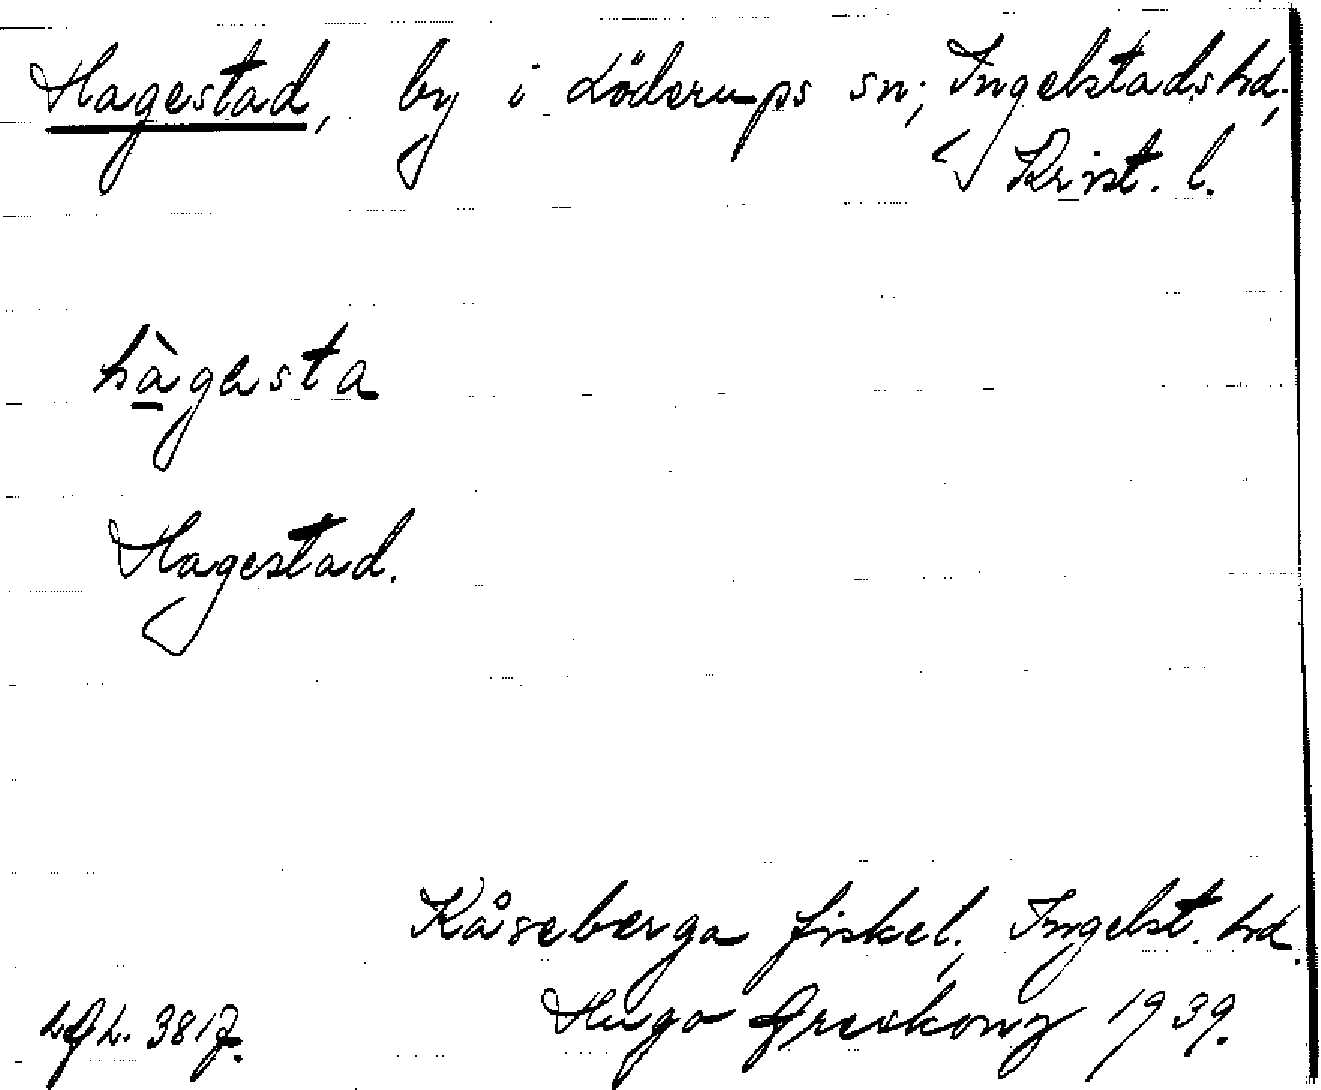 Hagestad, by i Löderups sn; Ingelstads hd.,
Krist. l.
hàgesta
Hagestad.
Kåseberga fiskel., Ingelst. hd.
Hugo Areskoug 1939.
LAL. 3817.